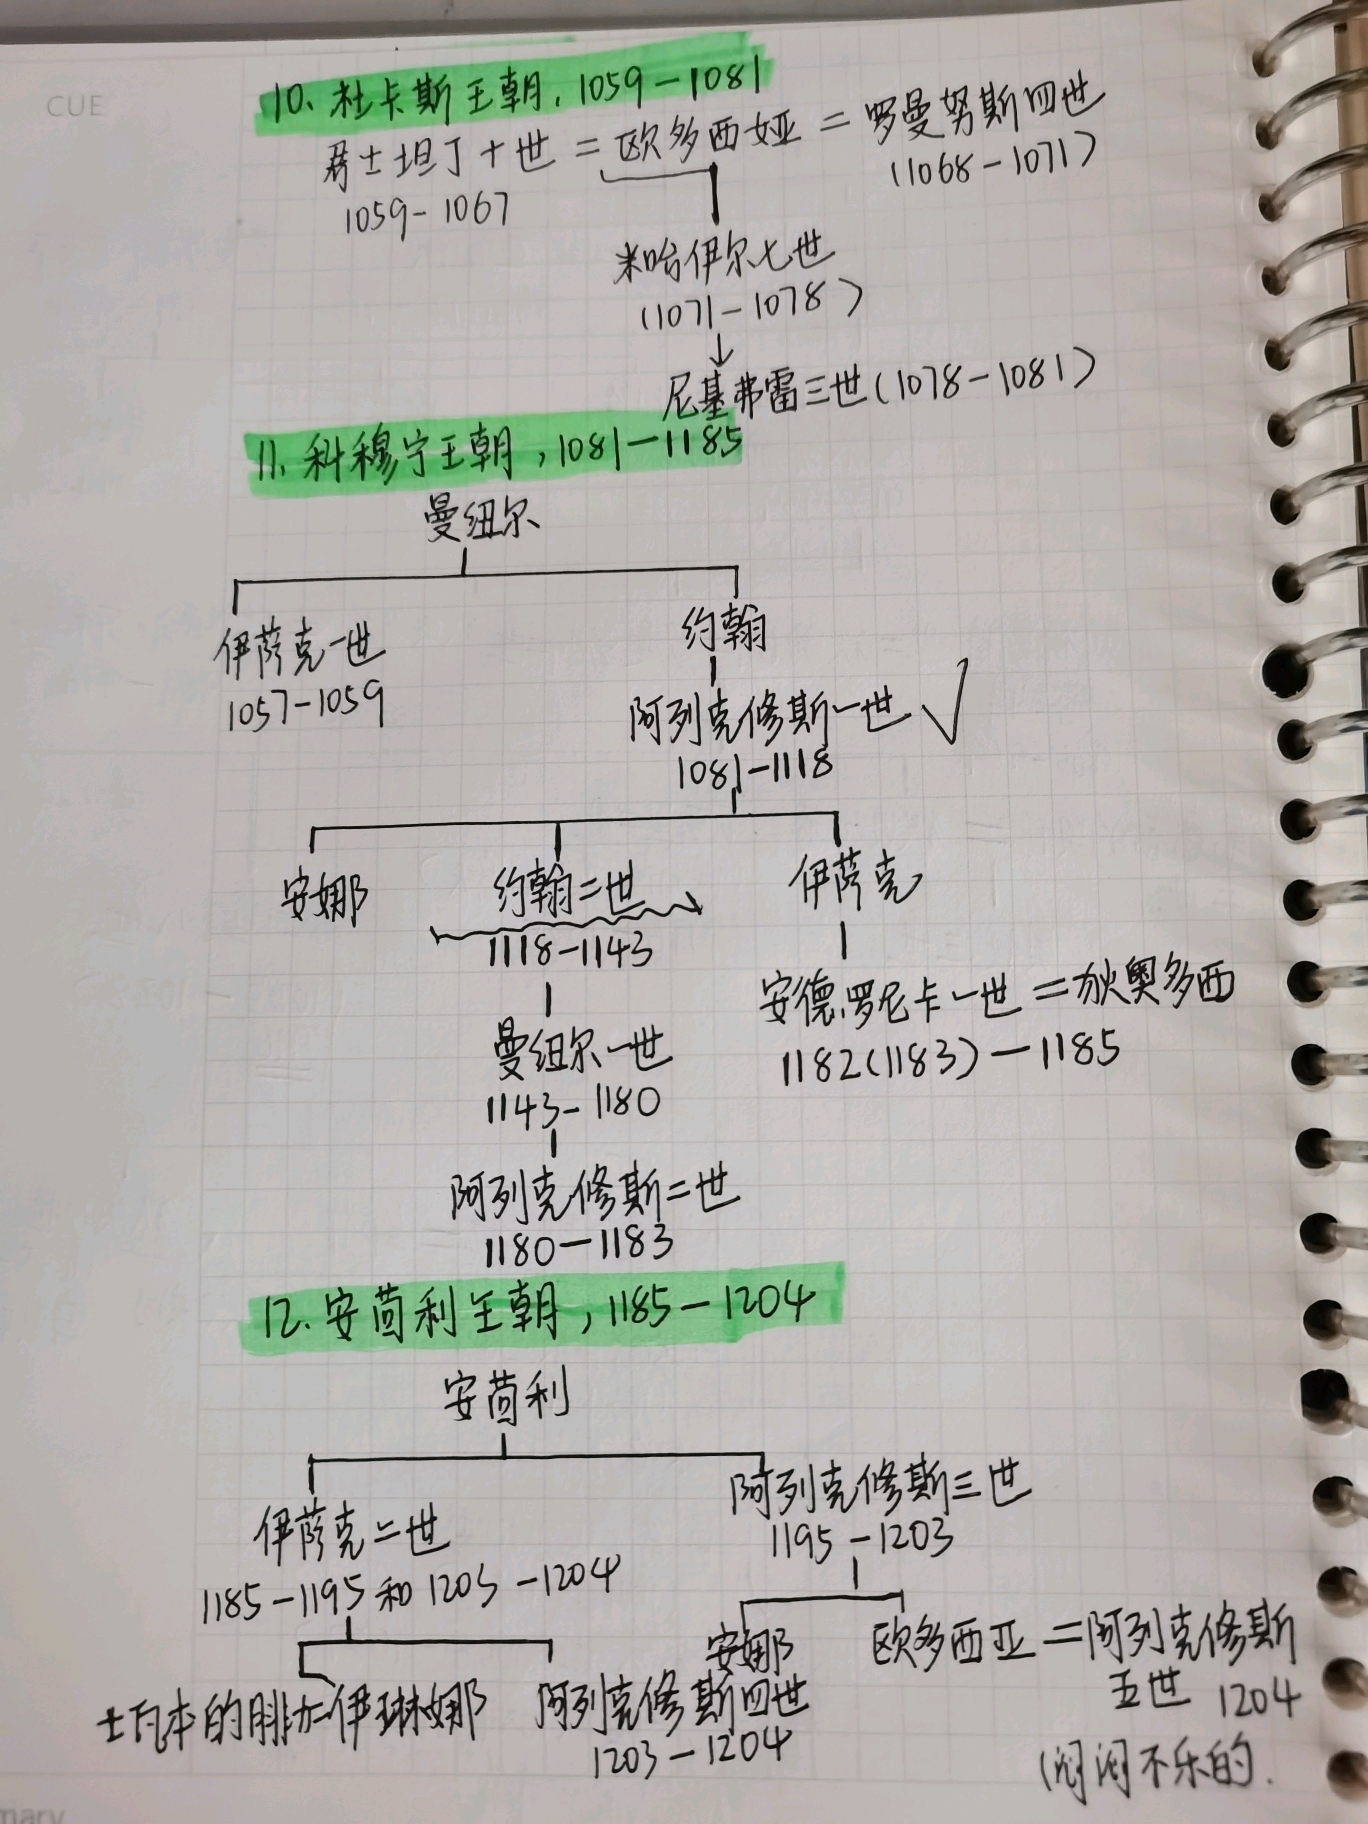 CUE
10、杜卡斯王朝，1059－1081
君士坦丁十世 = 欧多西娅 = 罗曼努斯四世
1059-1067
(1068-1071)
米哈伊尔七世
(1071-1078)
↓
尼基弗雷三世(1078-1081)
11、科穆宁王朝，1081－1185
曼纽尔
伊萨克一世
1057-1059
约翰
阿列克修斯一世 √
1081-1118
安娜
约翰二世
1118-1143
伊萨克
曼纽尔一世
1143-1180
安德罗尼卡一世 = 狄奥多西
1182(1183)－1185
阿列克修斯二世
1180-1183
12.安茴利王朝，1185－1204
安茴利
伊萨克二世
1185-1195和1203-1204
阿列克修斯三世
1195-1203
士瓦本的腓力=伊琳娜
阿列克修斯四世
1203-1204
安娜
欧多西亚 = 阿列克修斯
五世 1204
(闷闷不乐的.
mary